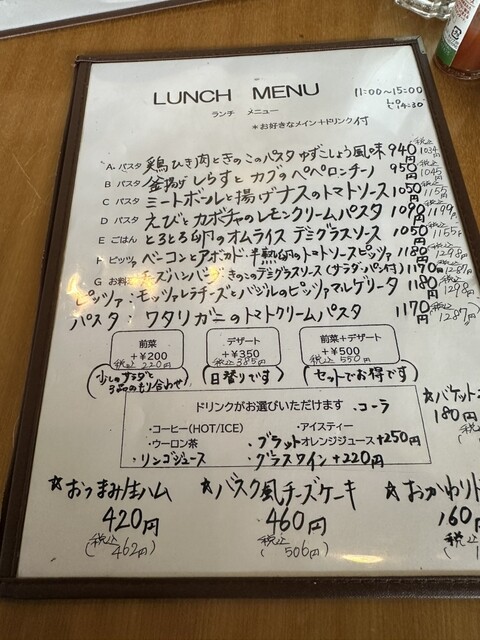 LUNCH MENU
11:00～15:00
ランチ メニュー
L.O 14:30
*お好きなメイン+ドリンク付
A. パスタ 鶏ひき肉ときのこのパスタ ゆずこしょう風味 940円 税込 1034円
B パスタ 釜揚げしらすとカブのペペロンチーノ 950円 税込 1045円
C パスタ ミートボールと揚げナスのトマトソース 1050円 税込 1155円
D パスタ えびとカボチャのレモンクリームパスタ 1090円 税込 1199円
E ごはん とろとろ卵のオムライス デミグラスソース 1050円 税込 1155円
F ピッツァ ベーコンとアボカド・半熟卵のトマトソースピッツァ 1180円 税込 1298円
G お料理 チーズハンバーグ きのこデミグラスソース (サラダ・パン付) 1170円 税込 1287円
ピッツァ:モッツァレラチーズとバジルのピッツァマルゲリータ 1180円 税込 1298円
パスタ:ワタリガニのトマトクリームパスタ 1170円 税込 1287円
前菜 デザート 前菜+デザート
+¥200 +¥350 +¥500
税込 220円 税込 385円 税込 550円
(少しのサラダと3品のもり合わせ) (日替りです) (セットでお得です)
ドリンクがお選びいただけます ・コーラ
・コーヒー(HOT/ICE) ・アイスティー
・ウーロン茶 ・ブラッドオレンジジュース+250円
・リンゴジュース ・グラスワイン+220円
☆バケット
180円
☆おつまみ生ハム ☆バスク風チーズケーキ ☆おかわり
420円 460円 160円
(税込 462円) (税込 506円) (税込